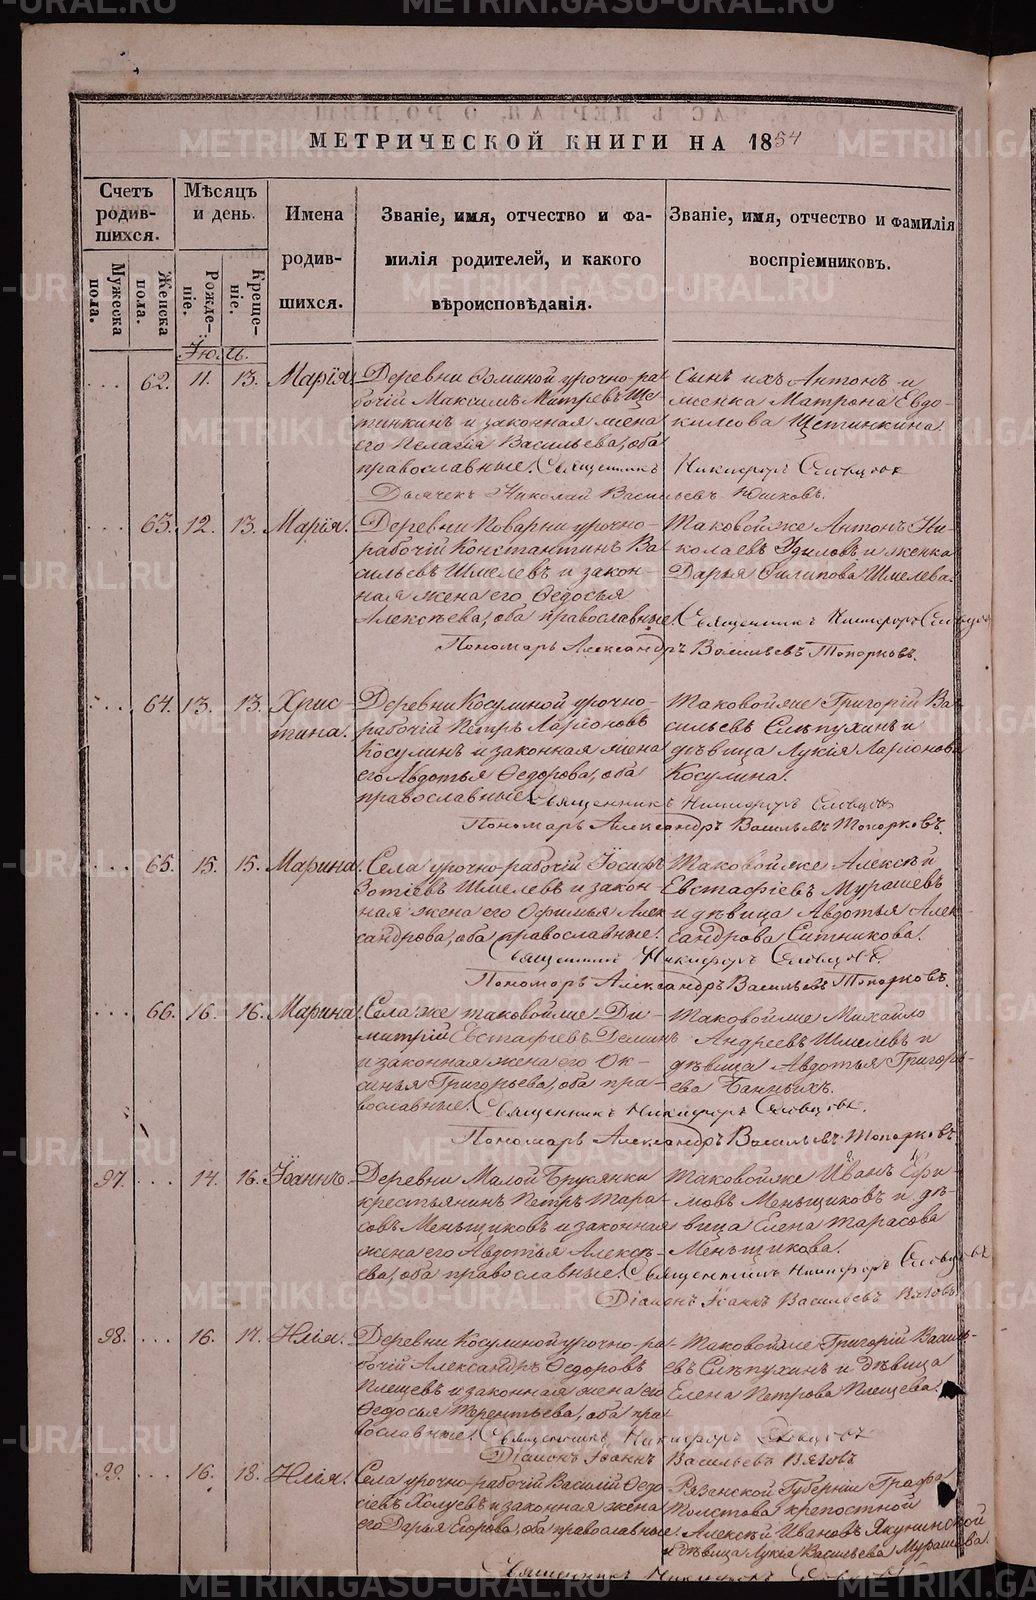 МЕТРИЧЕСКОЙ КНИГИ НА 1854
Счетъ родив-шихся.
Мужеска пола.
Женска пола.
Мѣсяцъ и день.
Рожде-ніе.
Креще-ніе.
Имена родив-шихся.
Званіе, имя, отчество и фа-
милія родителей, и какого
вѣроисповѣданія.
Званіе, имя, отчество и фамилія
воспріемниковъ.
Іюль.
62. 11. 13. Марія.
Деревни урочно-ра-
бочій Максимъ Митревъ Ще-
тинкинъ и законная жена
его Пелагія Васильева, оба
православные. Священникъ Никифоръ Словцовъ
Дьячекъ Николай Васильевъ Юшковъ.
Сынъ ихъ Антонъ и
женка Матрона Евдо-
кимова Щетинкина.
63. 12. 13. Марія.
Деревни Поварни урочно-
рабочій Константинъ Ва-
сильевъ Шмелевъ и закон-
ная жена его Ѳедосья
Алексѣева, оба православные. Священникъ Никифоръ Словцовъ
Пономарь Александръ Васильевъ Топорковъ.
Таковой же Антонъ Ни-
колаевъ и женка
Дарья Филипова Шмелева.
64. 13. 13. Хрис-
тина.
Деревни Косулиной урочно-
рабочій Петръ Ларіоновъ
Косулинъ и законная жена
его Авдотья Ѳедорова, оба
православные. Священникъ Никифоръ Словцовъ
Пономарь Александръ Васильевъ Топорковъ.
Таковой же Григорій Ва-
сильевъ Слѣпухинъ и
дѣвица Лукія Ларіонова
Косулина.
65. 15. 15. Марина.
Села урочно-рабочій Іосафъ
Зотіевъ Шмелевъ и закон-
ная жена его Офимья Алек-
сандрова, оба православные.
Священникъ Никифоръ Словцовъ.
Пономарь Александръ Васильевъ Топорковъ.
Таковой же Алексѣй
Евстафіевъ Мурашевъ
и дѣвица Авдотья Алек-
сандрова Ситникова.
66. 16. 16. Марина.
Села же таковой же Ди-
митрій Евстафіевъ Деминъ
и законная жена его Ок-
синья Григорьева, оба пра-
вославные. Священникъ Никифоръ Словцовъ.
Пономарь Александръ Васильевъ Топорковъ.
Таковой же Михайло
Андреевъ Шмелевъ и
дѣвица Авдотья Григорь-
ева Банныхъ.
97. 14. 16. Іоаннъ.
Деревни Малой Брусянки
крестьянинъ Петръ Тара-
совъ Меньщиковъ и законная
жена его Авдотья Алексѣ-
ева, оба православные. Священникъ Никифоръ Словцовъ
Діаконъ Іоаннъ Васильевъ Вязовъ
Таковой же Иванъ Ефи-
мовъ Меньщиковъ и дѣ-
вица Елена Тарасова
Меньщикова.
98. 16. 17. Илія.
Деревни Косулиной урочно-ра-
бочій Александръ Ѳедоровъ
Плещевъ и законная жена его
Ѳедосья Терентьева, оба пра-
вославные. Священникъ Никифоръ Словцовъ
Діаконъ Іоаннъ Васильевъ Вязовъ
Таковой же Григорій Василь-
евъ Слѣпухинъ и дѣвица
Елена Петрова Плещева.
99. 16. 18. Илія.
Села урочно-рабочій Василій Ѳедо-
сіевъ Холуевъ и законная жена
его Дарья Егорова, оба православные.
Рязанской Губерніи Графа
Толстова крепостной
Алексѣй Ивановъ Якунинской
и дѣвица Лукія Васильева Мурашева.
Священникъ Никифоръ Словцовъ
METRIKI.GASO-URAL.RU